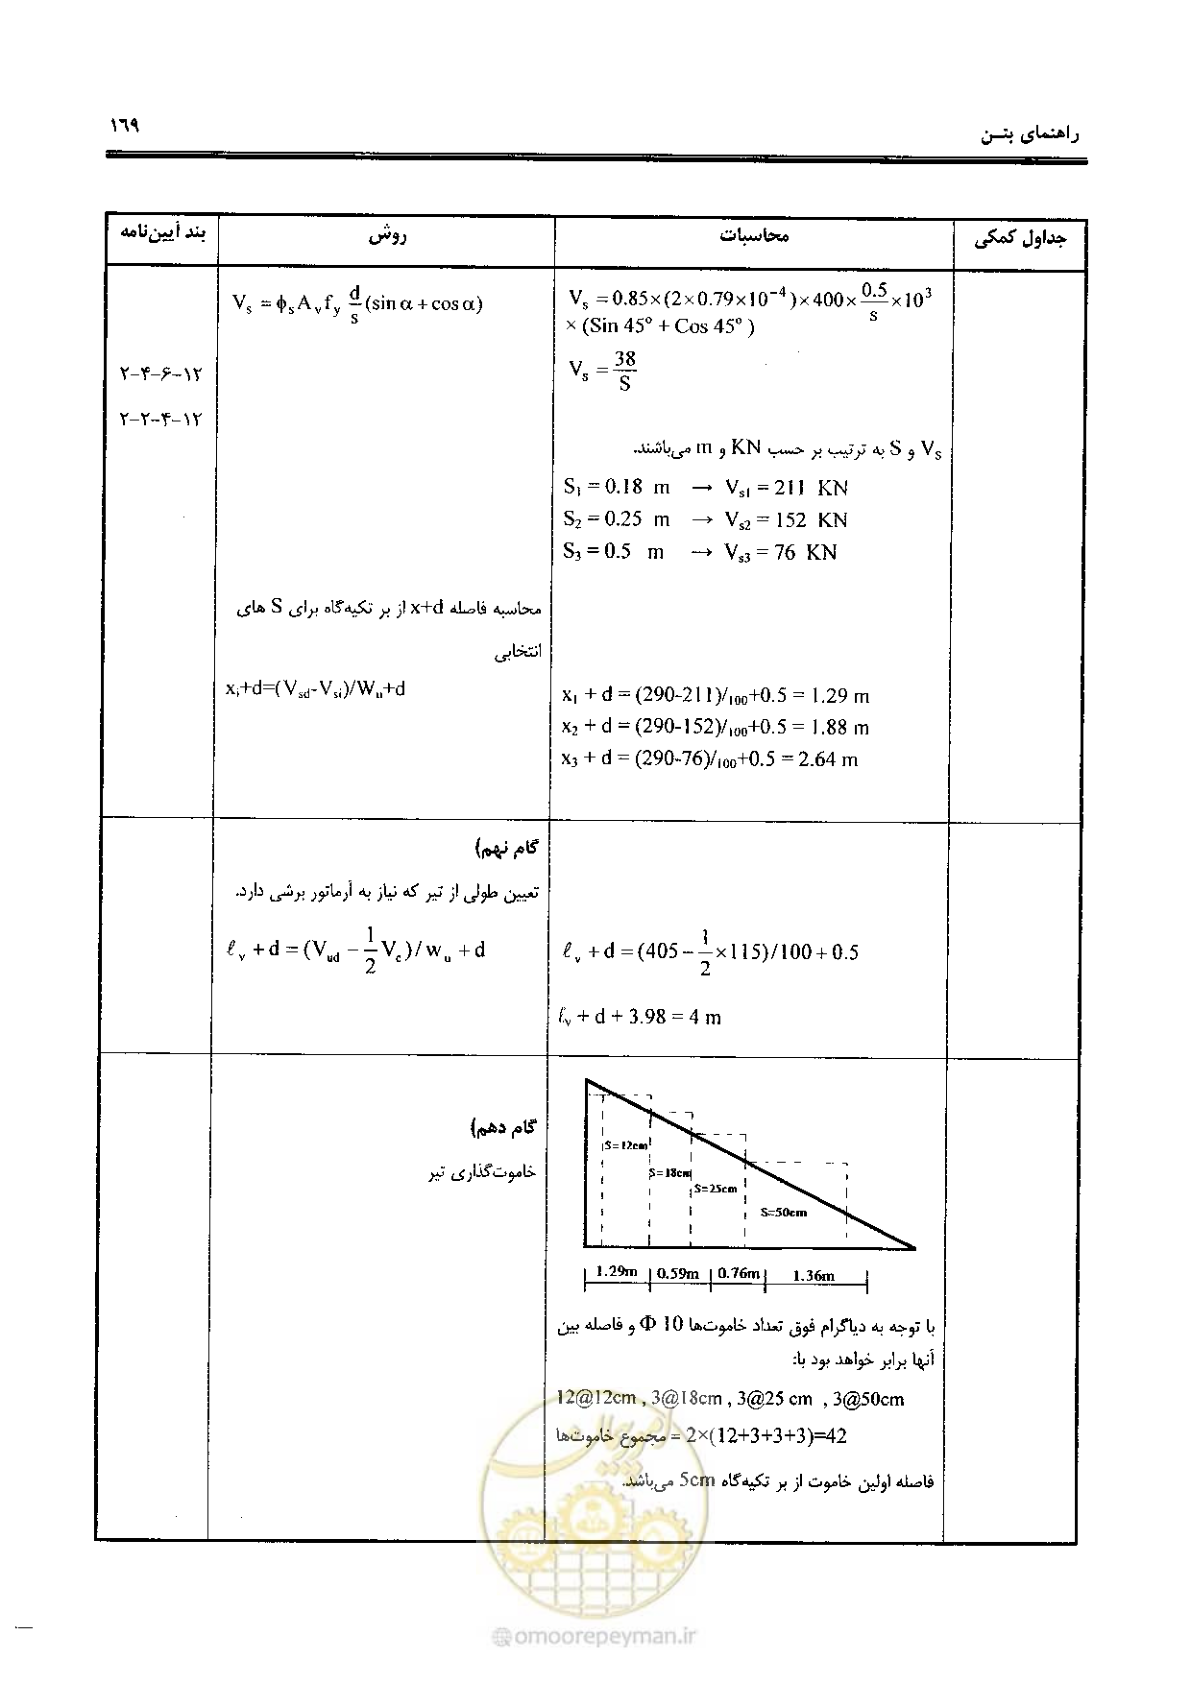 راهنمای بتــن
۱۶۹
جداول کمکی
محاسبات
روش
بند آیین‌نامه
V_s = 0.85×(2×0.79×10^-4)×400× 0.5/s ×10^3
× (Sin 45° + Cos 45°)
V_s = 38/S
V_s و S به ترتیب بر حسب KN و m می‌باشند.
S_1 = 0.18 m → V_s1 = 211 KN
S_2 = 0.25 m → V_s2 = 152 KN
S_3 = 0.5 m → V_s3 = 76 KN
x_1 + d = (290-211)/100+0.5 = 1.29 m
x_2 + d = (290-152)/100+0.5 = 1.88 m
x_3 + d = (290-76)/100+0.5 = 2.64 m
V_s = ϕ_s A_v f_y d/s (sin α + cos α)
محاسبه فاصله x+d از بر تکیه‌گاه برای S های
انتخابی
x_i+d=(V_sd-V_si)/W_u+d
۱۲-۶-۴-۲
۱۲-۴-۲-۲
گام نهم)
تعیین طولی از تیر که نیاز به آرماتور برشی دارد.
ℓ_v + d = (V_ud − 1/2 V_c)/w_u + d
ℓ_v + d = (405 − 1/2 ×115)/100 + 0.5
ℓ_v + d + 3.98 = 4 m
گام دهم)
خاموت‌گذاری تیر
S=12cm
S=18cm
S=25cm
S=50cm
1.29m 0.59m 0.76m 1.36m
با توجه به دیاگرام فوق تعداد خاموت‌ها Φ 10 و فاصله بین
آنها برابر خواهد بود با:
12@12cm , 3@18cm , 3@25 cm , 3@50cm
مجموع خاموت‌ها = 2×(12+3+3+3)=42
فاصله اولین خاموت از بر تکیه‌گاه 5cm می‌باشد.
امور پیمان
@omoorepeyman.ir